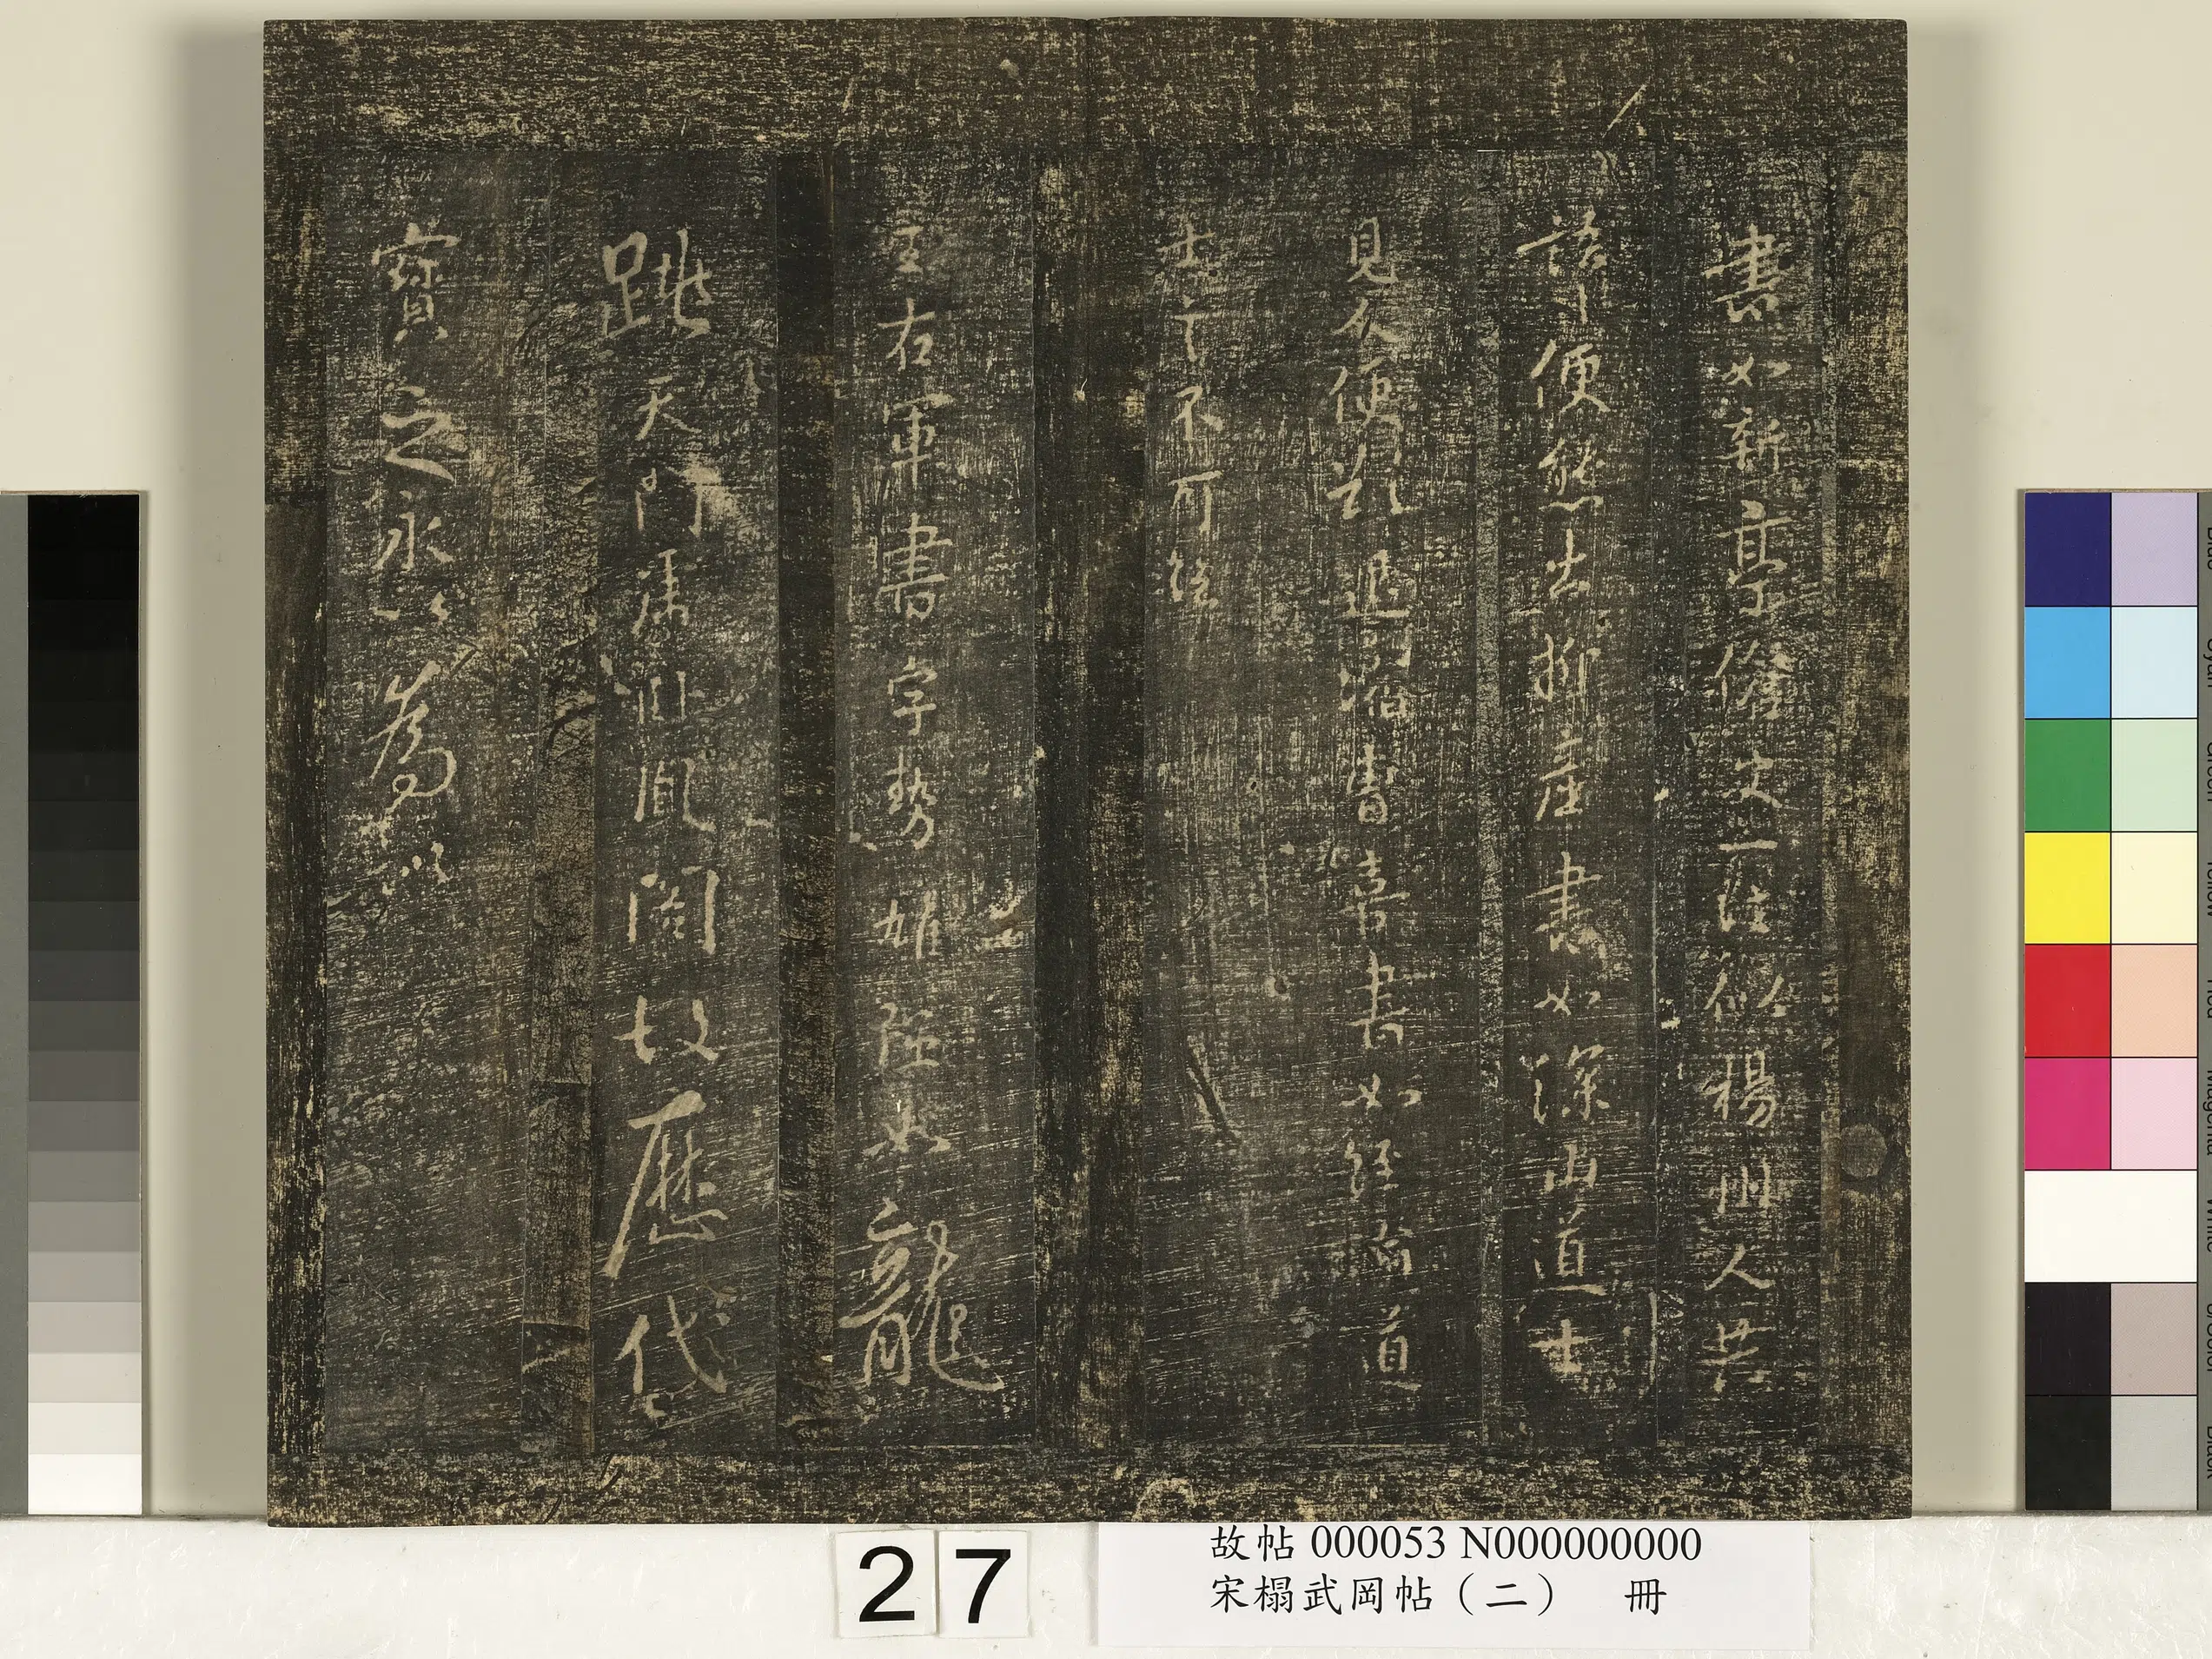 書如新亭傖父一往似楊州人共
語便態出柳產書如深山道士
見人便欲退縮曹喜書如經論道
士言不可絕
王右軍書字勢雄強如龍
跳天門虎臥鳳闕故歷代
寶之永以為訓
27
故帖 000053 N000000000
宋榻武岡帖（二） 冊